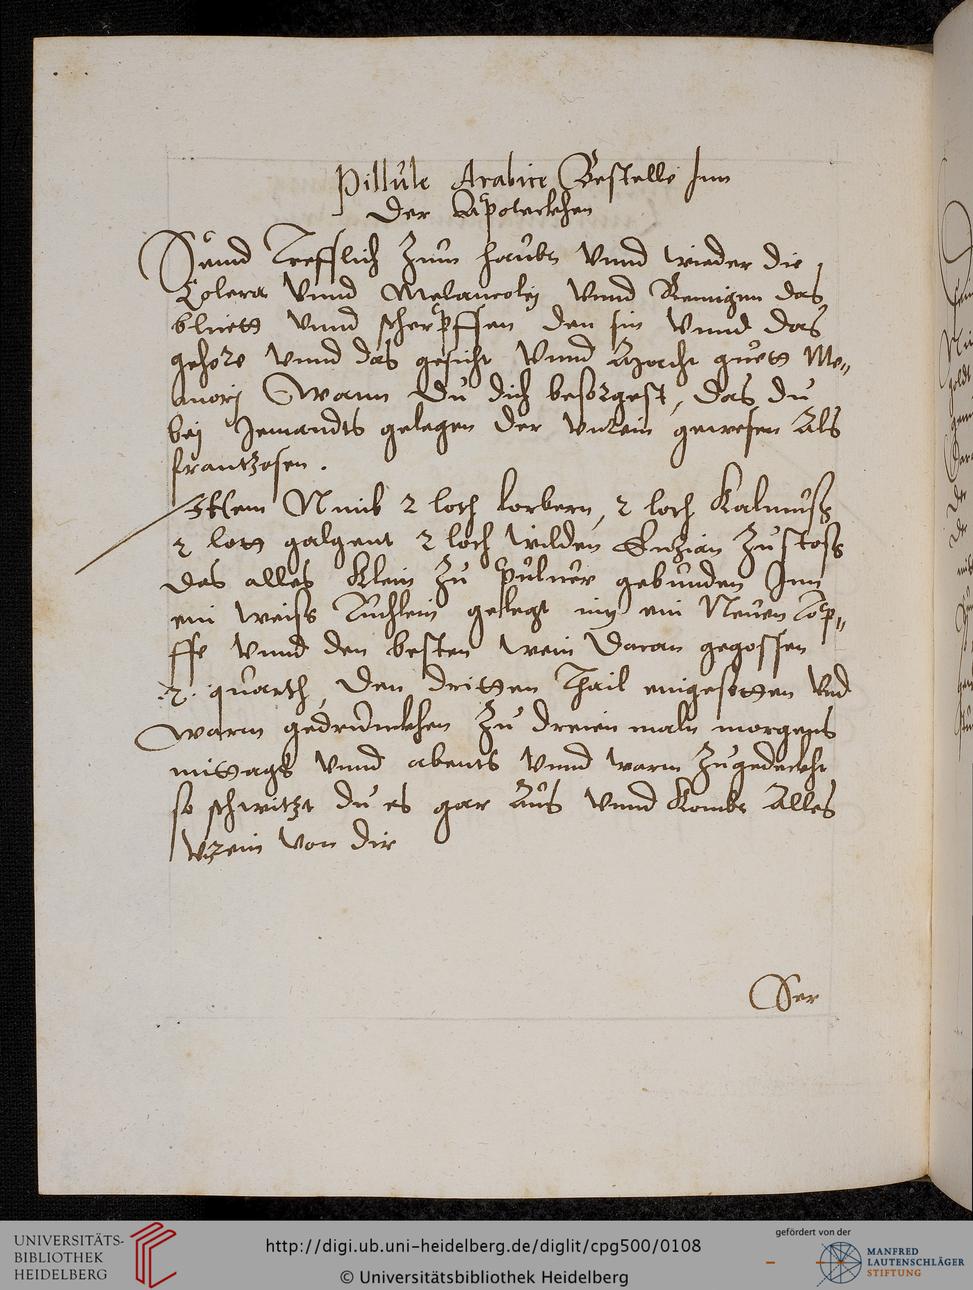 Pillule Arabice Bestelle Inn
Der Apoteckhen
Seind Trefflich Zum haubt vnnd wieder die
Colera vnnd Melancolej vnnd Reinigen das
bluett vnnd scherpffen den sin vnnd das
gehore vnnd das gesicht vnnd Macht guett Me„
morj Wann Du dich besorgest, das du
bej Jemandts gelegen der vnrein gewesen Als
frantzosen .
Item Nimb 2 loth lorbern, 2 loth Kalmuß
2 lott galgent 2 loth wilden Enzian Zustoß
das alles Klein Zu pulver gebunden Inn
ein weiß Tuchlein gelegt inn ein Neuen Töp„
ffe vnnd den besten wein Daran gegossen
.2. quarth, Den dritten Thail eingesotten vnd
warm gedrunckhen Zu dreien maln morgens
mittags vnnd abents vnnd warm Zugedeckht
so schwitzt du es gar Aus vnnd Kombt Alles
vnrein von dir
Ser
UNIVERSITÄTS-
BIBLIOTHEK
HEIDELBERG
http://digi.ub.uni-heidelberg.de/diglit/cpg500/0108
© Universitätsbibliothek Heidelberg
gefördert von der
MANFRED
LAUTENSCHLÄGER
STIFTUNG